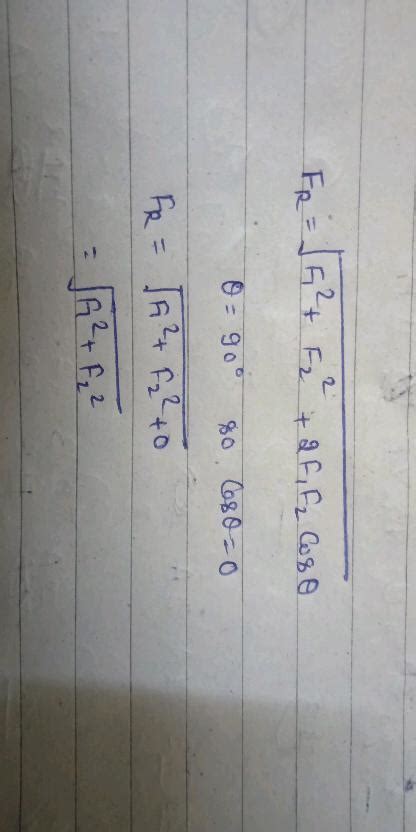 F_R = √(F₁² + F₂² + 2F₁F₂ Cosθ)
θ = 90° so Cosθ = 0
F_R = √(F₁² + F₂² + 0)
= √(F₁² + F₂²)